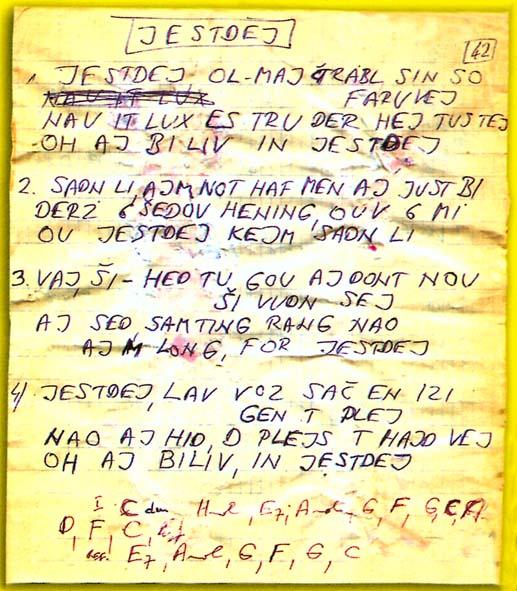 JESTDEJ
42
1. JESTDEJ OL-MAJ TRABL SIN SO
FARUVEJ
NAU IT LUX ES TRU DER HEJ TUSTEJ
OH AJ BILIV IN JESTDEJ
2. SADN LI, AJM NOT HAF MEN AJ JUST BI
DERZ 6 ŠEDOV HENING, OUV 6 MI
OU JESTDEJ KEJM SADN LI
3. VAJ, ŠI - HED TU, GOU AJ DONT NOU
ŠI VUDN SEJ
AJ SED, SAMTING RANG NAO
AJ M LONG, FOR JESTDEJ
4) JESTDEJ, LAV VOZ SAČ EN IZI
GEN T PLEJ
NAO AJ HID, D PLEJS T HAJD VEJ
OH AJ BILIV, IN JESTDEJ
I C dur, E7, G, F, G, C
D, F, C
E7, G, F, G, C